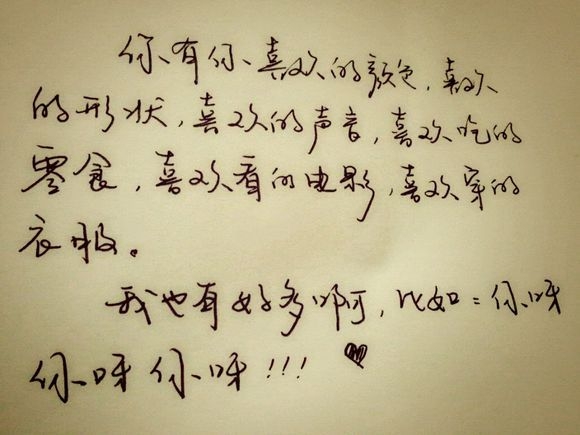 你有你喜欢的颜色,喜欢
的形状,喜欢的声音,喜欢吃的
零食,喜欢看的电影,喜欢穿的
衣服。
我也有好多啊,比如:你呀
你呀你呀!!!